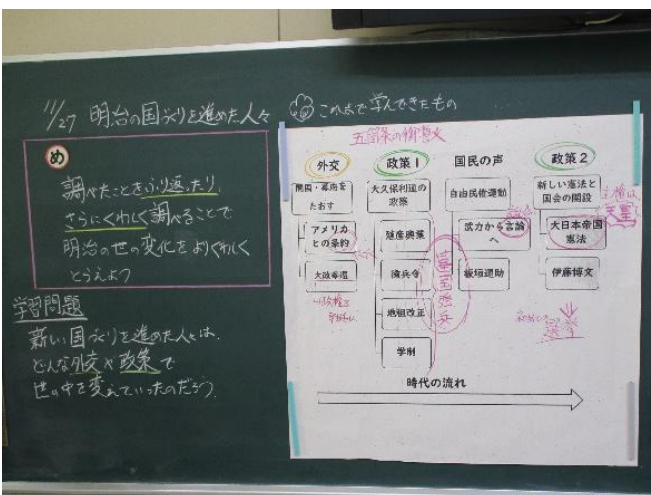 11/27 明治の国づくりを進めた人々
これまで学んできたもの
め
調べたことをふり返ったり、
さらにくわしく調べることで
明治の世の変化をよりくわしく
とらえよう
学習問題
新しい国づくりを進めた人々は、
どんな外交や政策で
世の中を変えていったのだろう。
五箇条の御誓文
外交
開国・幕府を
たおす
アメリカ
との条約
大政奉還
政策1
大久保利通の
政策
殖産興業
徴兵令
地租改正
学制
富国強兵
国民の声
自由民権運動
武力から言論
へ
板垣退助
政策2
新しい憲法と
国会の開設
大日本帝国
憲法
伊藤博文
主権は
天皇
選挙
時代の流れ